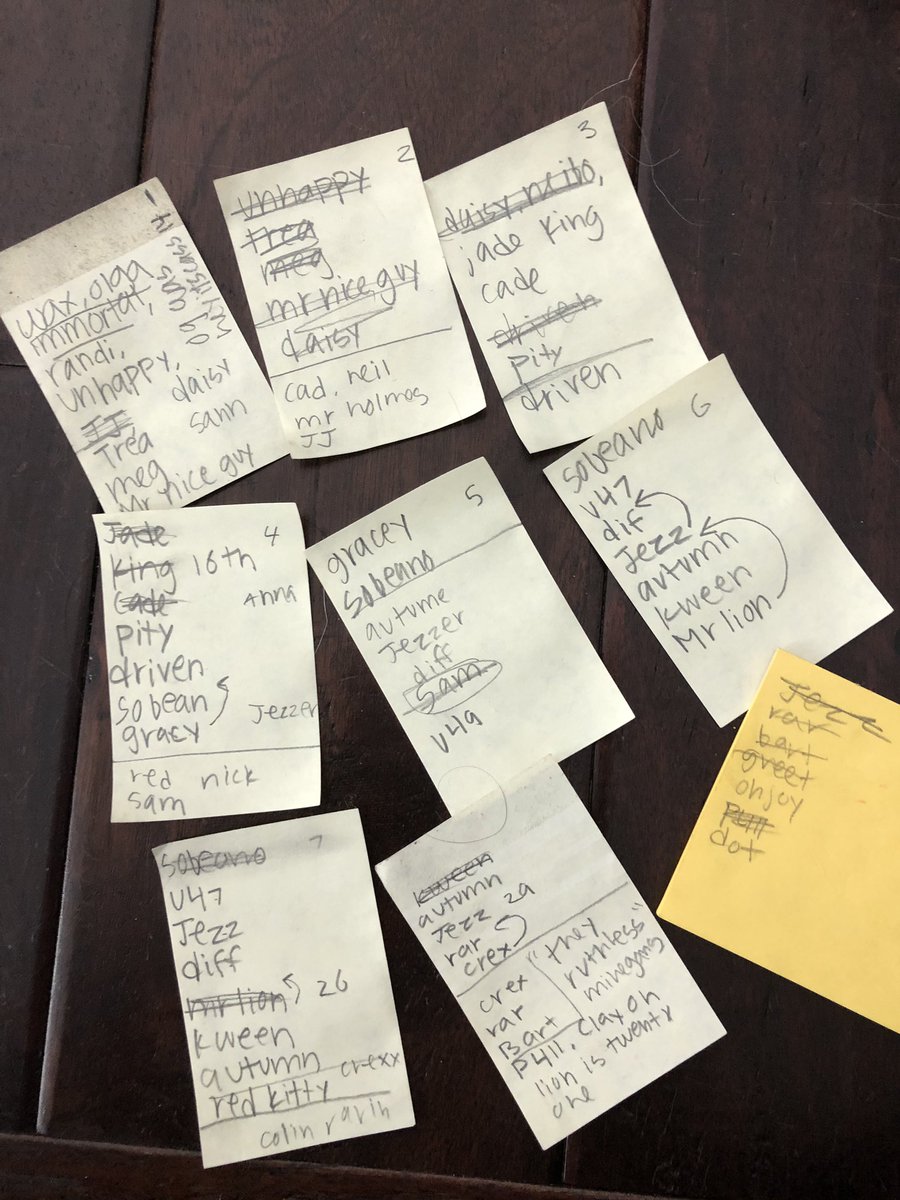 1
wax, olga
immortal,
randi,
unhappy,
JJ
Trea
meg
Mr nice guy
daisy
sann
2
unhappy
trea
meg
mr nice guy
daisy
cad, neil
mr holmos
JJ
3
daisy, neito,
jade king
cade
driven
pity
driven
4
Jade
King 16th
Cade
Anna
pity
driven
sobean
gracy
Jezzer
red nick
sam
5
gracey
sobeano
autume
Jezzer
diff
Sam
V49
6
sobeano
V47
dif
Jezz
autumn
kween
Mr lion
7
sobeano
V47
Jezz
diff
mr lion 26
kween
autumn
crexx
red kitty
colin
kween
autumn
Jezz 29
rar
crex
crex
rar
Bart
"they
ruthless"
minegang
P411, clax on
lion is twenty
one
Jezz
rar
bart
greet
ohjoy
dot